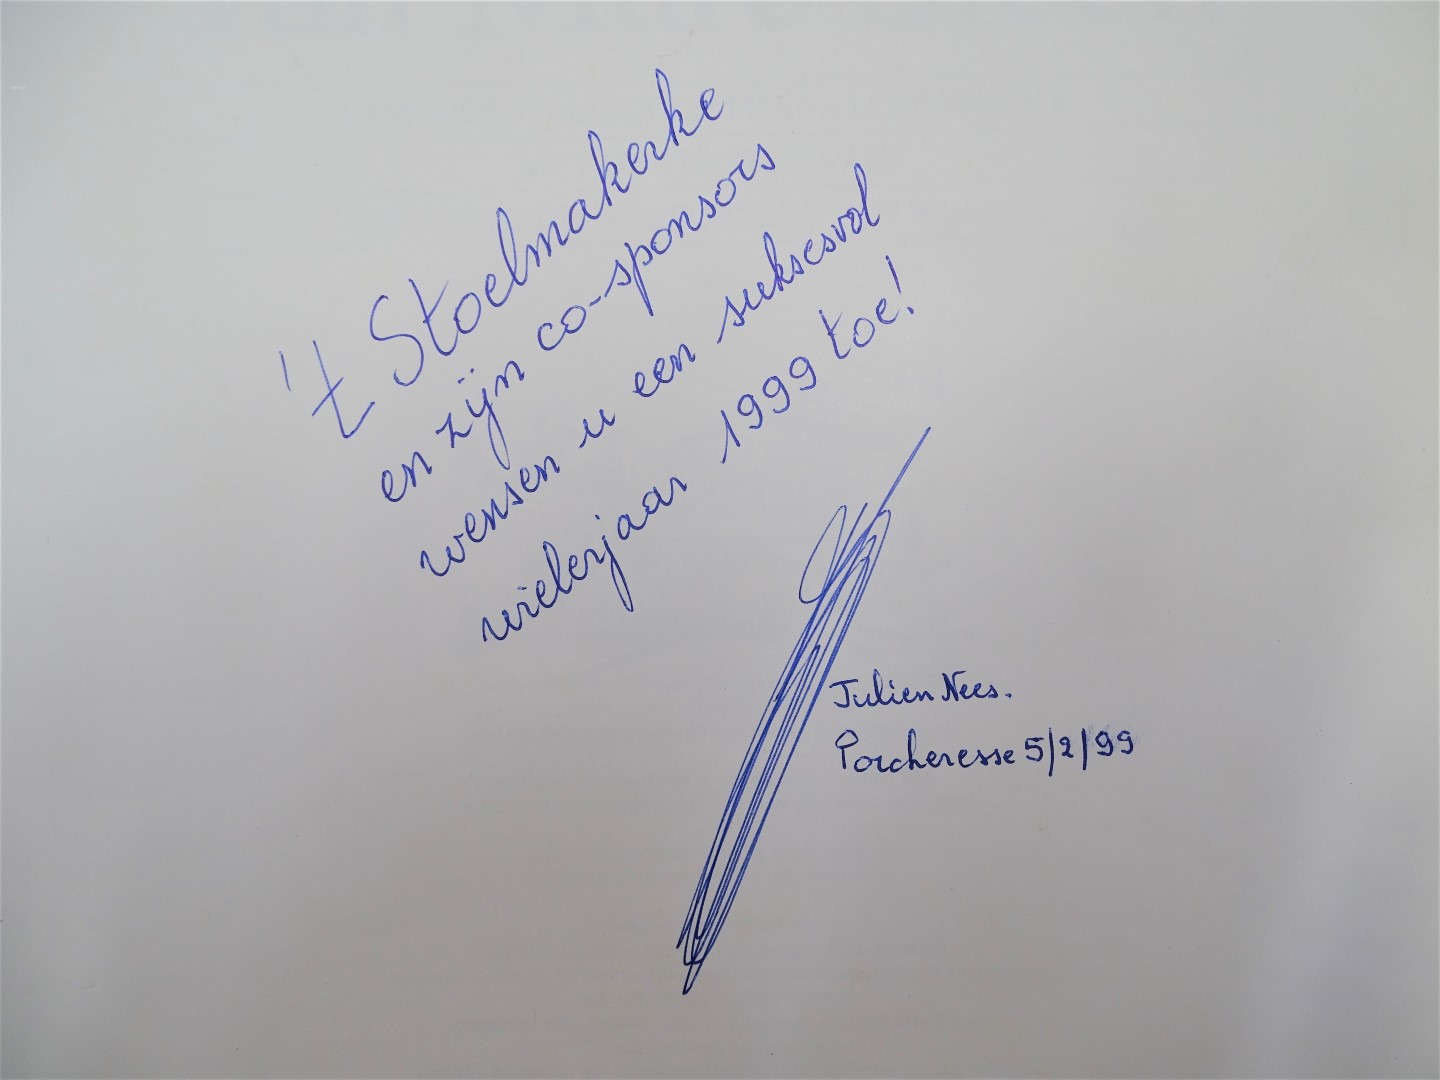 't Stoelmakerke
en zijn co-sponsors
wensen u een suksesvol
wielerjaar 1999 toe!
Julien Nees.
Porcheresse 5/2/99